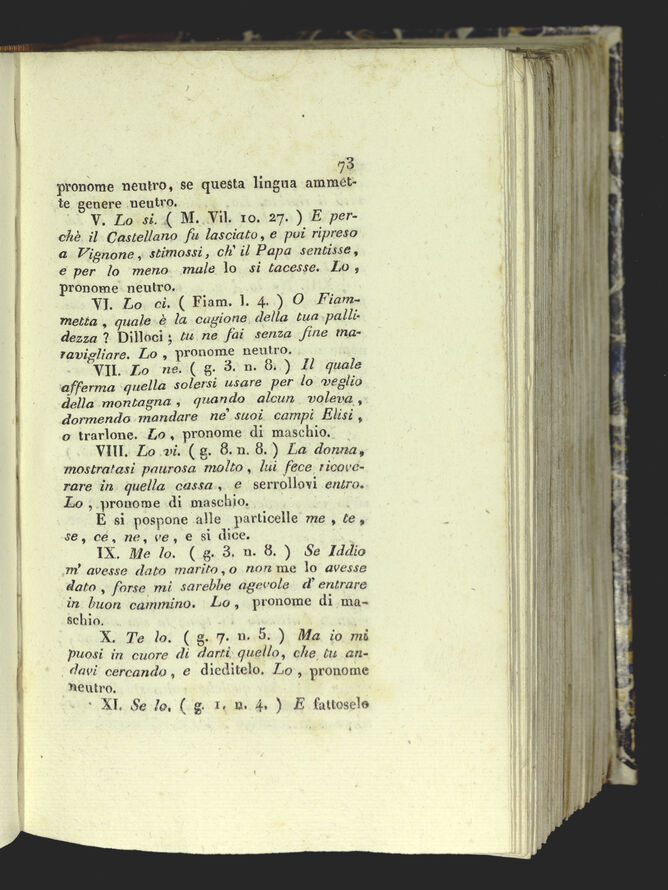 73
pronome neutro, se questa lingua ammet-
te genere neutro.
V. Lo si. ( M. Vil. 10. 27. ) E per-
chè il Castellano fu lasciato, e poi ripreso
a Vignone, stimossi, ch' il Papa sentisse,
e per lo meno male lo si tacesse. Lo,
pronome neutro.
VI. Lo ci. ( Fiam. l. 4. ) O Fiam-
metta, quale è la cagione della tua palli-
dezza? Dilloci; tu ne fai senza fine ma-
ravigliare. Lo, pronome neutro.
VII. Lo ne. ( g. 3. n. 8. ) Il quale
afferma quella solersi usare per lo veglio
della montagna, quando alcun voleva,
dormendo mandare ne' suoi campi Elisi,
o trarlone. Lo, pronome di maschio.
VIII. Lo vi. ( g. 8. n. 8. ) La donna,
mostratasi paurosa molto, lui fece ricove-
rare in quella cassa, e serrollovi entro.
Lo, pronome di maschio.
E si pospone alle particelle me, te,
se, ce, ne, ve, e si dice.
IX. Me lo. ( g. 3. n. 8. ) Se Iddio
m' avesse dato marito, o non me lo avesse
dato, forse mi sarebbe agevole d' entrare
in buon cammino. Lo, pronome di ma-
schio.
X. Te lo. ( g. 7. n. 5. ) Ma io mi
puosi in cuore di darti quello, che tu an-
davi cercando, e dieditelo. Lo, pronome
neutro.
XI. Se lo. ( g. 1. n. 4. ) E fattoselo